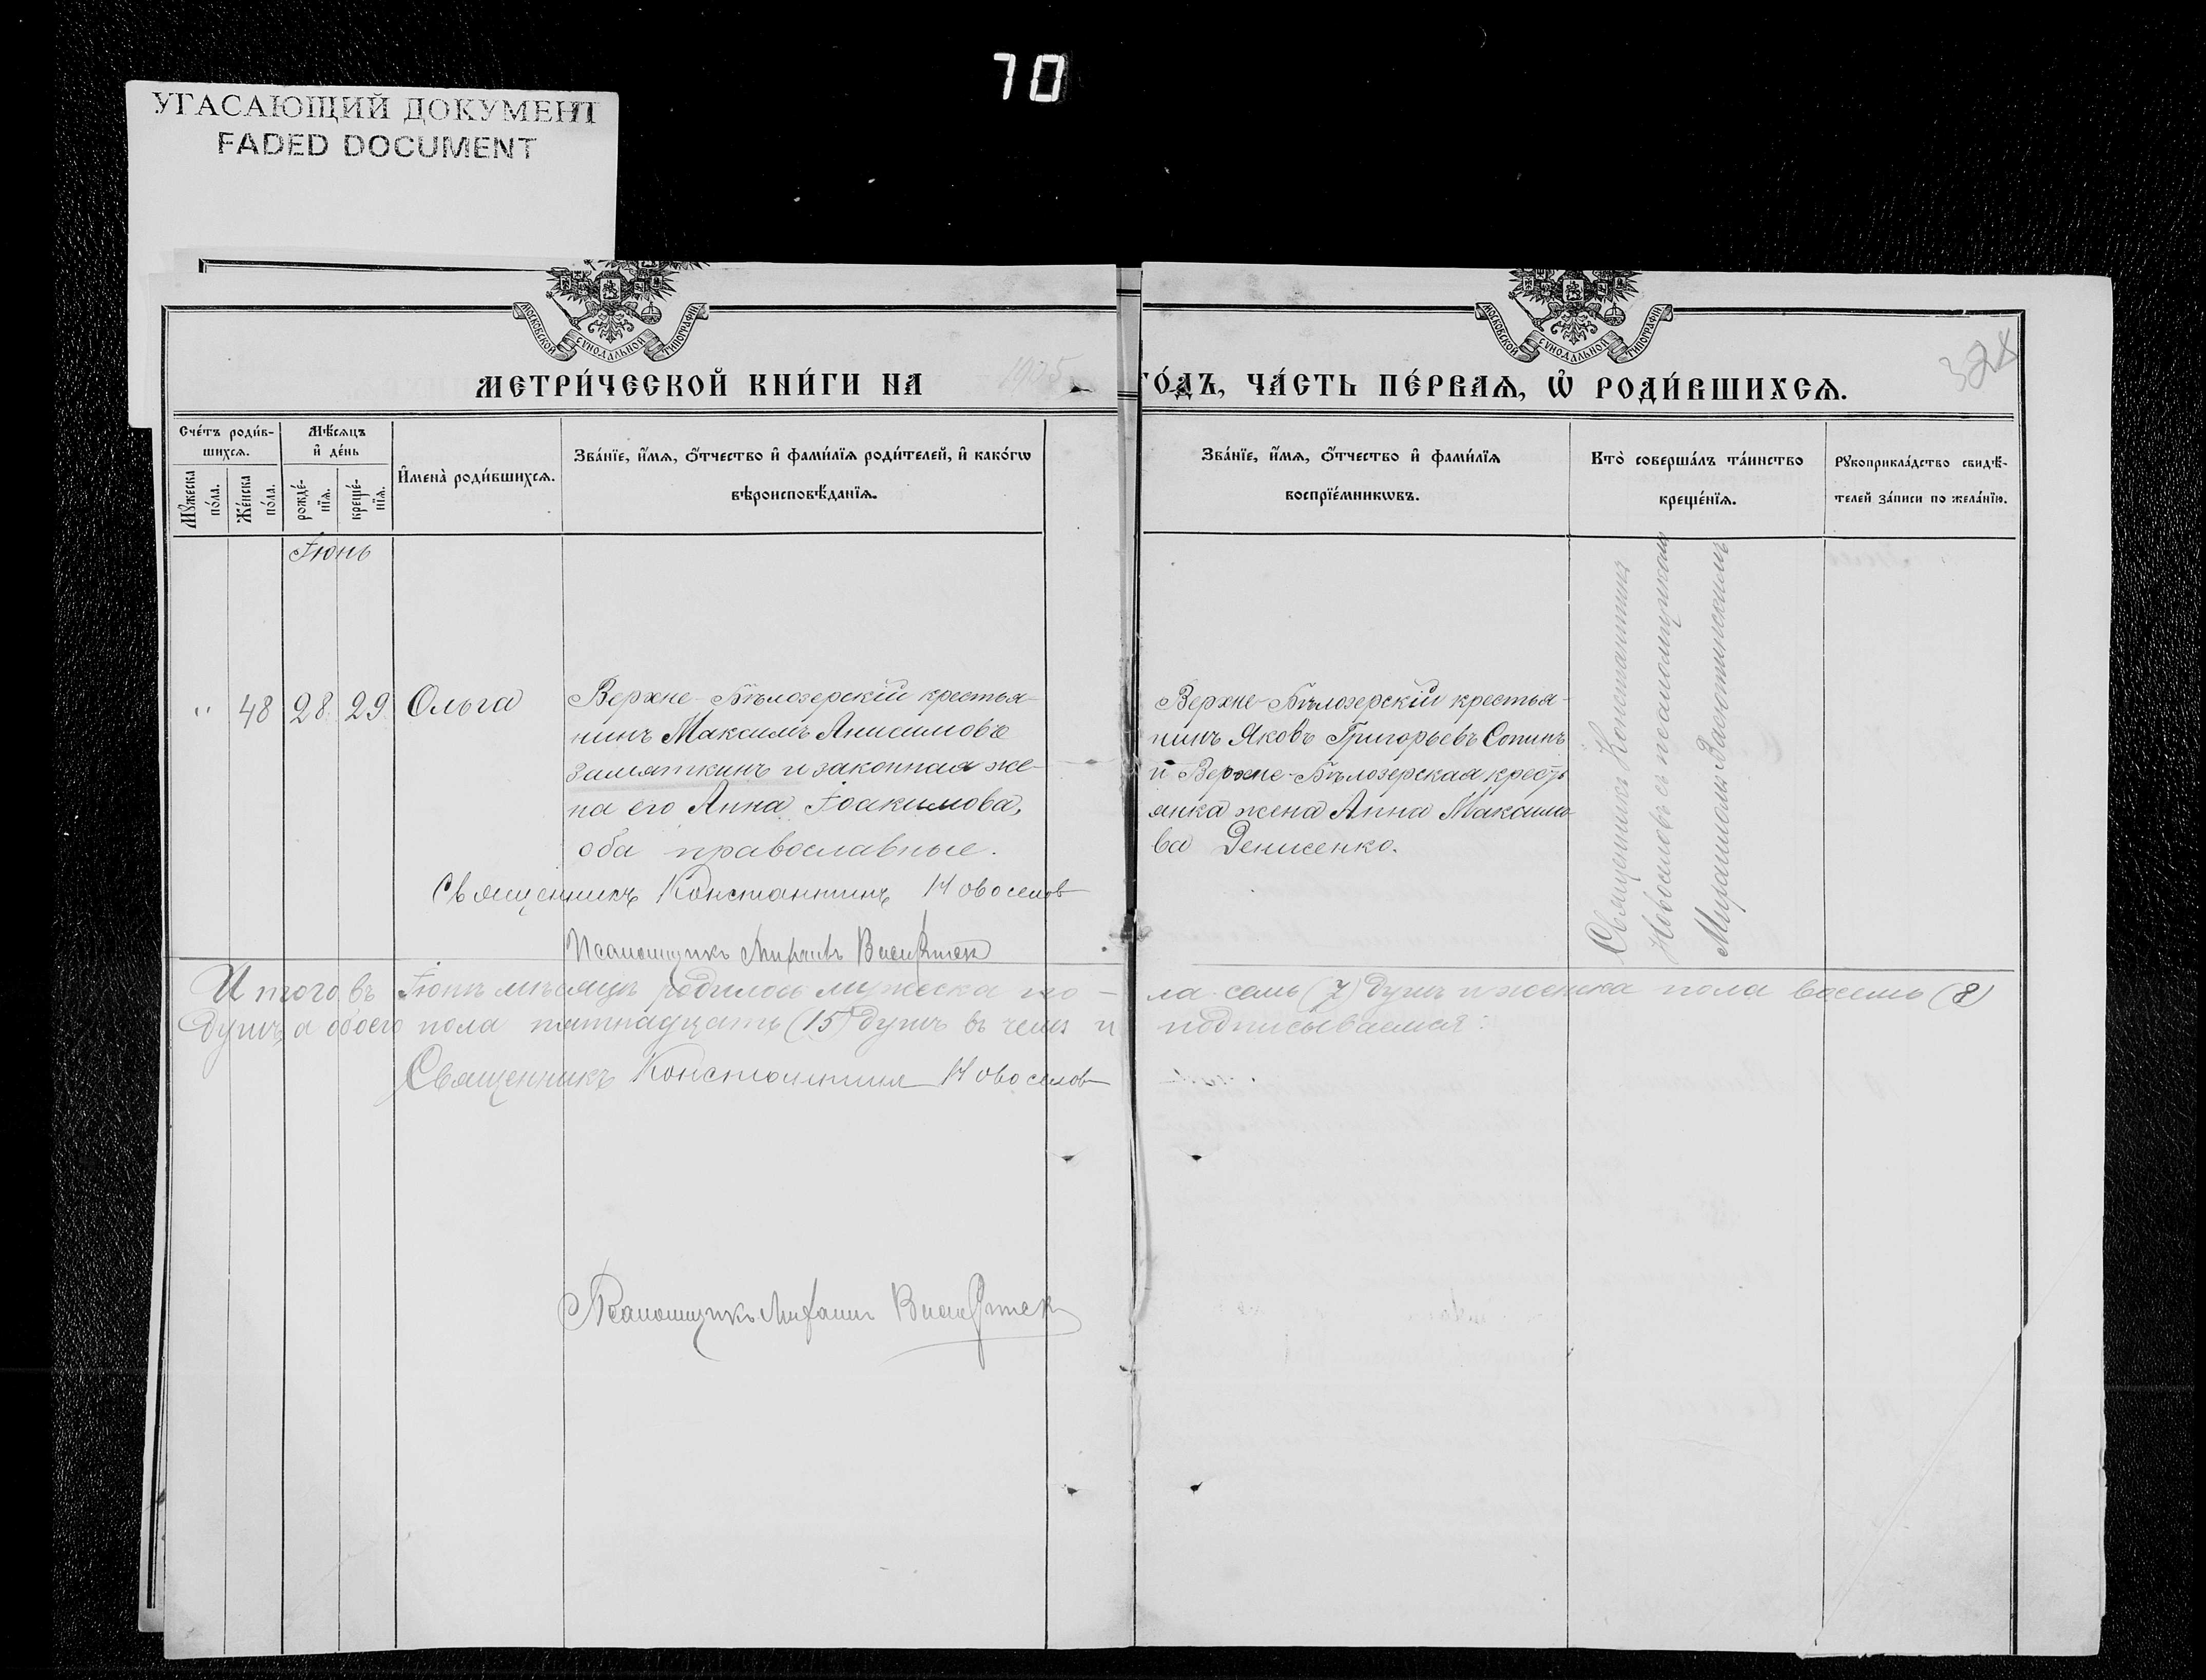 70
УГАСАЮЩИЙ ДОКУМЕНТ
FADED DOCUMENT
МОСКОВСКОЙ СѴНОДАЛЬНОЙ ТИПОГРАФІИ
МОСКОВСКОЙ СѴНОДАЛЬНОЙ ТИПОГРАФІИ
МЕТРИ́ЧЕСКОЙ КНИ́ГИ НА 1905
ГО́ДЪ, ЧА́СТЬ ПЕ́РВАЯ, Ѡ҆ РОДИ́ВШИХСЯ.
Сче́тъ роди́в-
шихся.
Мꙋжеска по́ла.
Же́нска по́ла.
Мѣ́сяцъ
и҆ де́нь
рожде́-
нїя.
креще́-
нїя.
И҆мена̀ роди́вшихся.
Зва́нїе, и҆́мя, ѻ҆́тчество и҆ фами́лїя роди́телей, и҆ како́гѡ
вѣроисповѣ́данїя.
Зва́нїе, и҆́мя, ѻ҆́тчество и҆ фами́лїя
воспрїе́мникѡвъ.
Кто̀ соверша́лъ та́инство
креще́нїя.
Рꙋкоприкла́дство свидѣ́-
телей за́писи по жела́нїю.
Іюнь
" 48 28. 29. Ольга
Верхне-Бѣлозерскій крестья-
нинъ Максимъ Анисимовъ
Замяткинъ и законная же-
на его Анна Іоакимова,
оба православные.
Верхне-Бѣлозерскій крестья-
нинъ Яковъ Григорьевъ Сопинъ
и Верхне-Бѣлозерская кресть
янка жена Анна Максимо
ва Денисенко.
Священникъ Константинъ
Новоселовъ съ псаломщикомъ
Священникъ Константинъ Новоселов
Псаломщикъ
Итого въ Іюнѣ мѣсяцѣ родилось мужеска по-ла семь (7) душъ и женска пола восемь (8)
душъ, а обоего пола пятнадцать (15) душъ въ чемъ и подписываемся:
Священникъ Константин Новоселов
Псаломщикъ